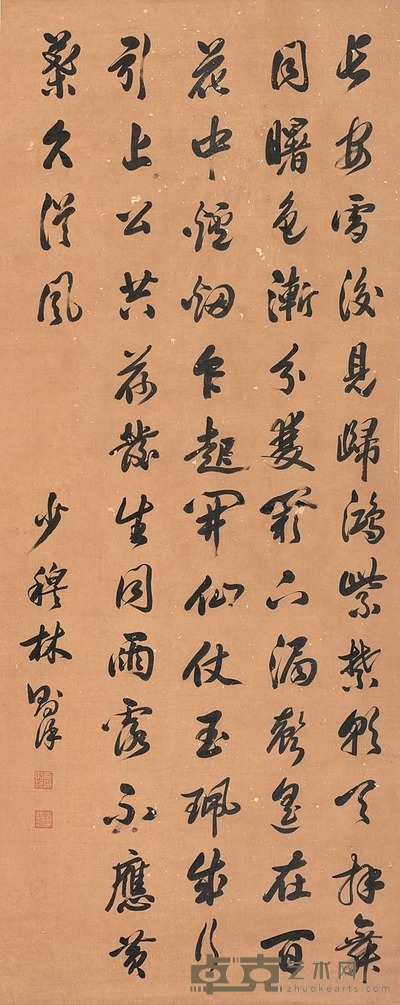 長安雪後見歸鴻紫禁朝天拜舞
同曙色漸分雙闕下漏聲遥在百
花中爐烟乍起開仙仗玉珮成行
引上公共荷發生同雨露不應黄
葉久從風
少穆林則徐
卓克艺术网
zhuokearts.com